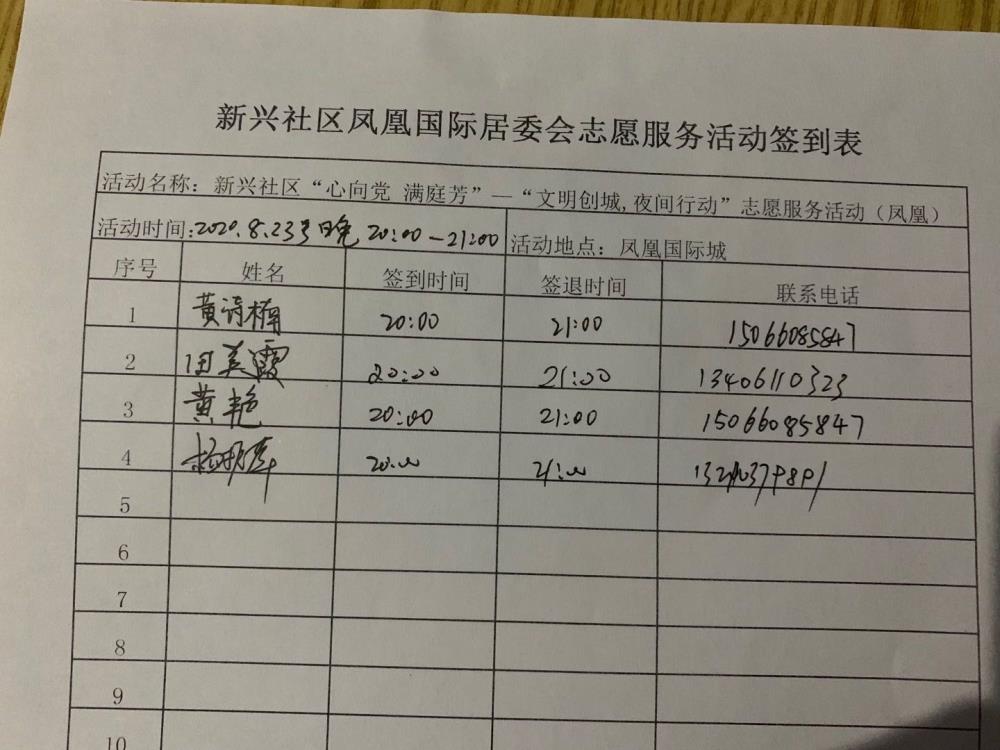 新兴社区凤凰国际居委会志愿服务活动签到表
活动名称：新兴社区“心向党 满庭芳”—“文明创城,夜间行动”志愿服务活动（凤凰）
活动时间:2020.8.23号晚 20:00-21:00 活动地点：凤凰国际城
序号 姓名 签到时间 签退时间 联系电话
1 黄诗楠 20:00 21:00 15066085847
2 田美霞 20:00 21:00 13406110323
3 黄艳 20:00 21:00 15066085847
4 20:00 21:00
5
6
7
8
9
10